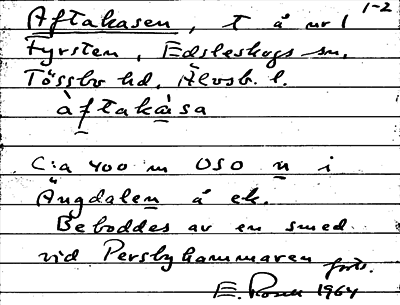 1-2
Aftakasen, t å nr 1
Fyrsten, Edsleskogs sn.
Tössbo hd, Älvsb. l.
àftakàsa
C:a 400 m OSO n i
Ängdalen å ek.
Beboddes av en smed
vid Persbyhammaren forts.
E. 1964